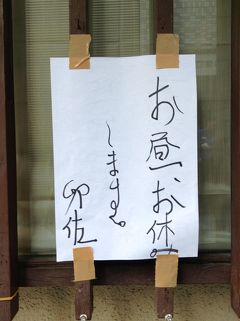 お昼、お休み
します。
卯佐